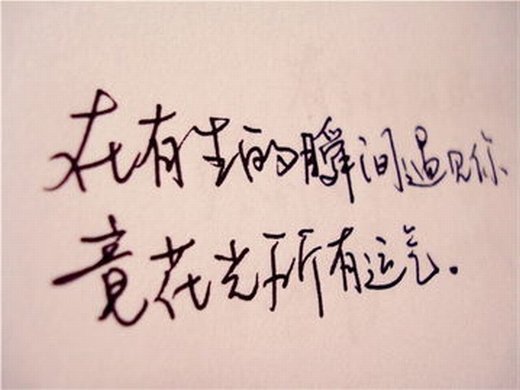 在有生的瞬间遇见你、
竟花光所有运气。